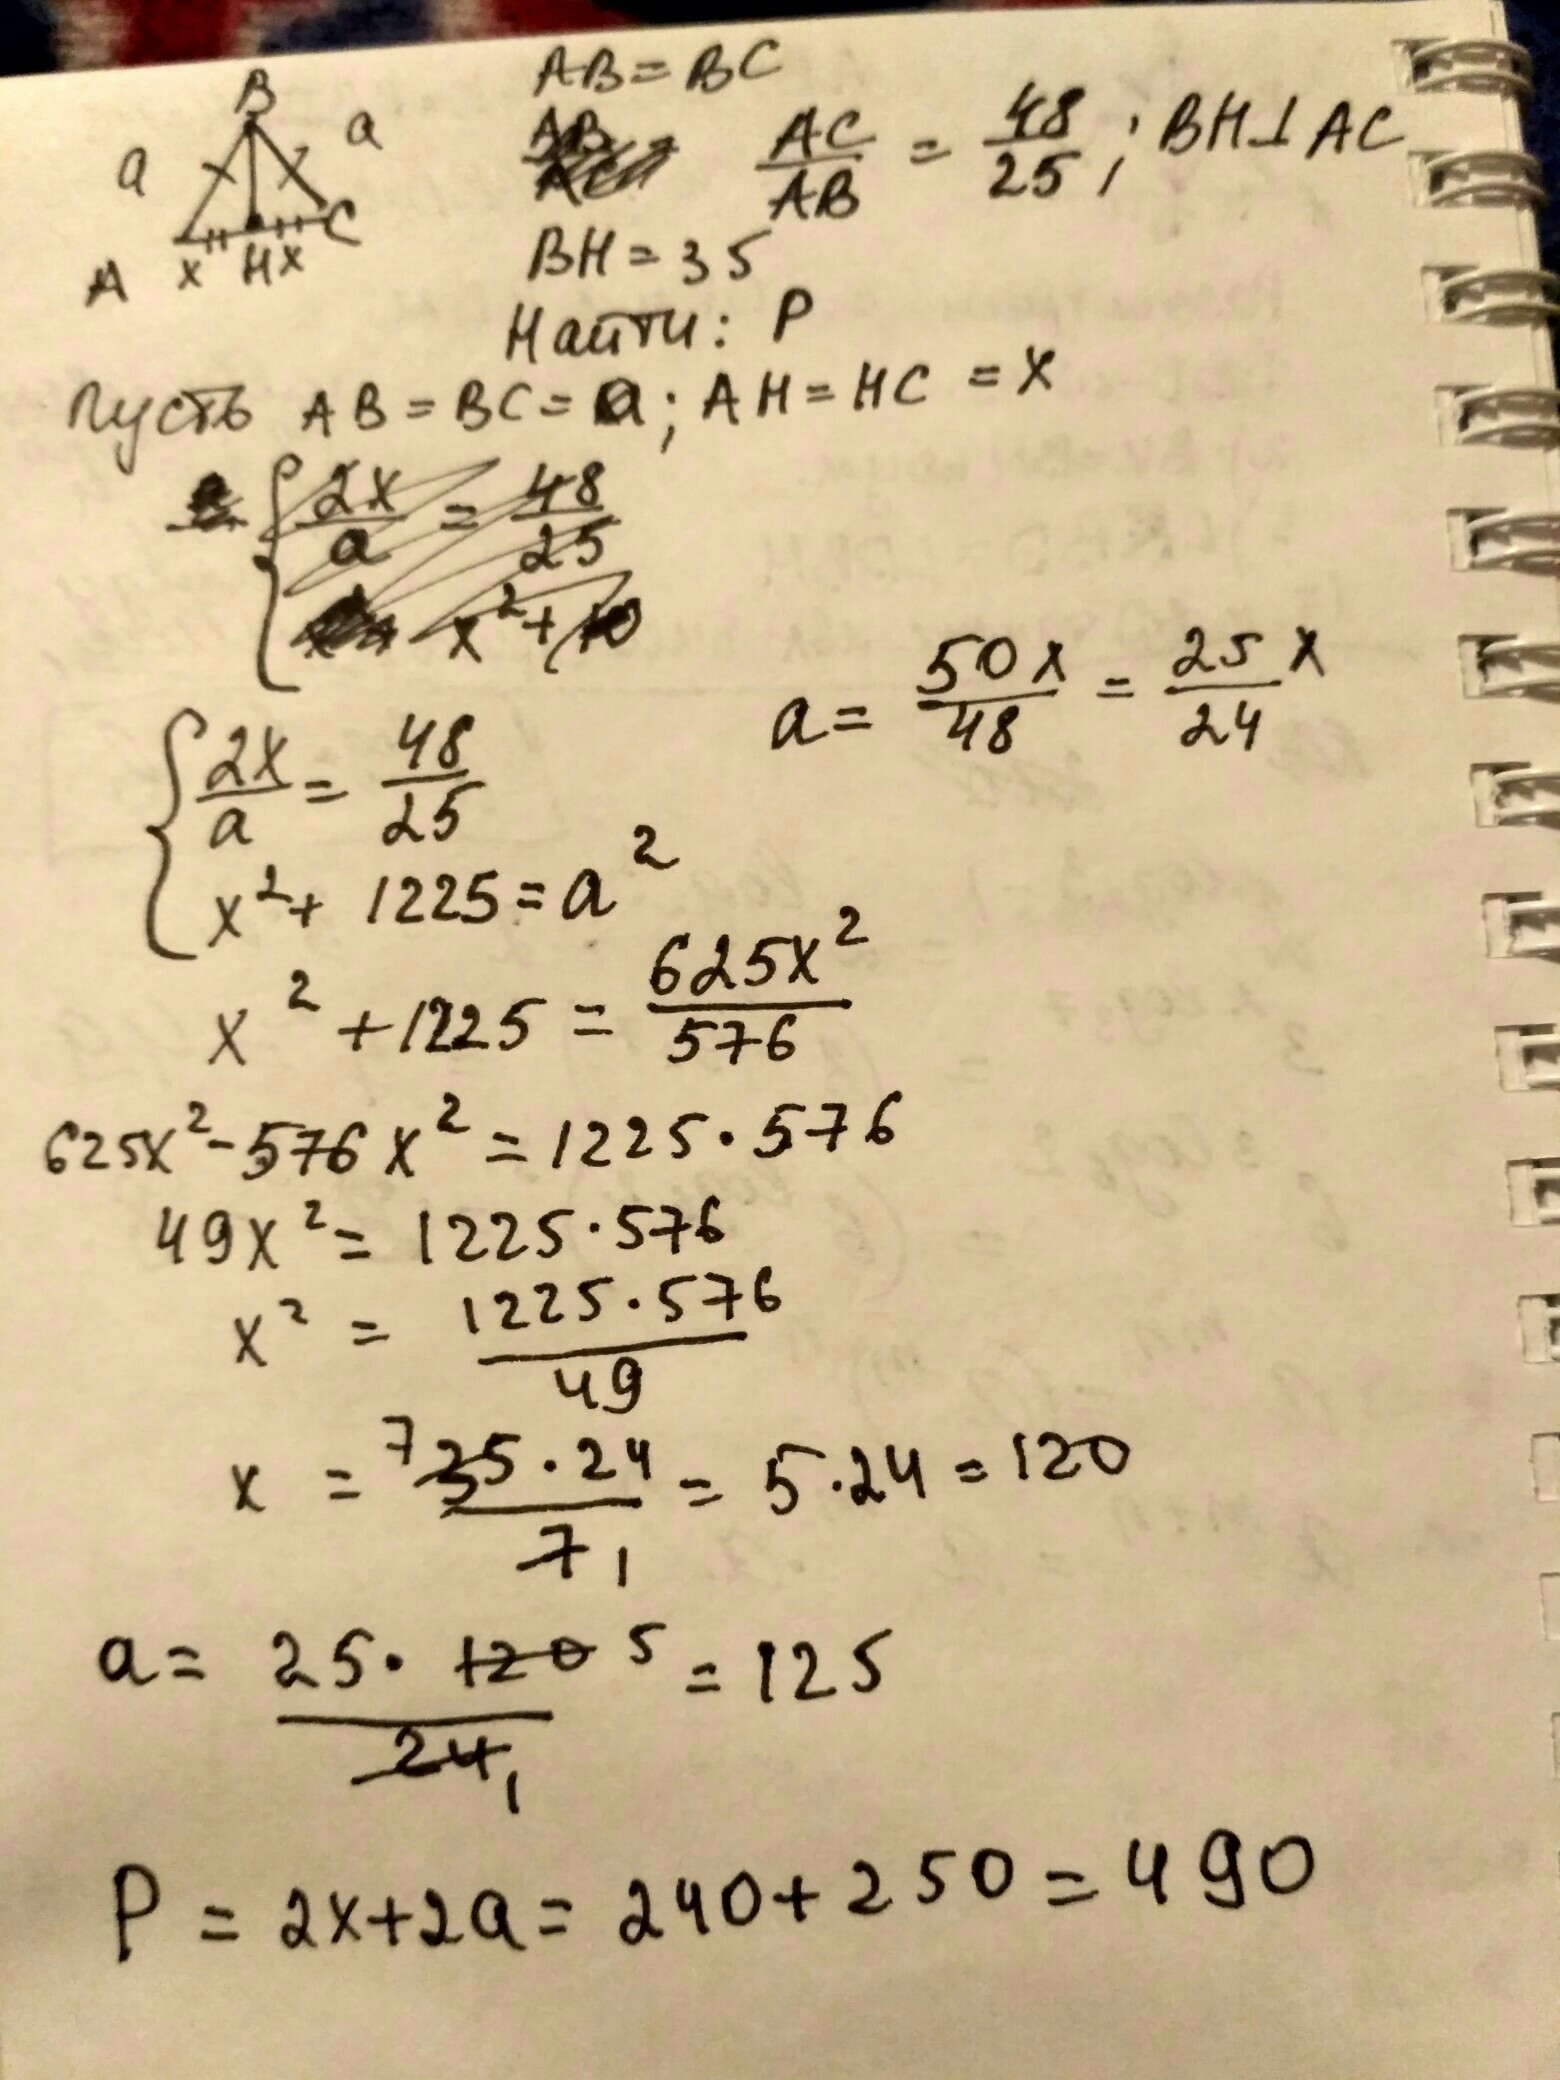 B
a a
A x H x C
AB = BC
AC/AB = 48/25 ; BH ⊥ AC
BH = 35
Найти: P
Пусть AB = BC = a; AH = HC = x
2x/a = 48/25
x² +
a = 50x/48 = 25/24 x
{ 2x/a = 48/25
x² + 1225 = a²
x² + 1225 = 625x²/576
625x² - 576x² = 1225 · 576
49x² = 1225 · 576
x² = 1225 · 576/49
x = 7 35 · 24/7 1 = 5 · 24 = 120
a = 25 · 120 5/24 1 = 125
P = 2x + 2a = 240 + 250 = 490